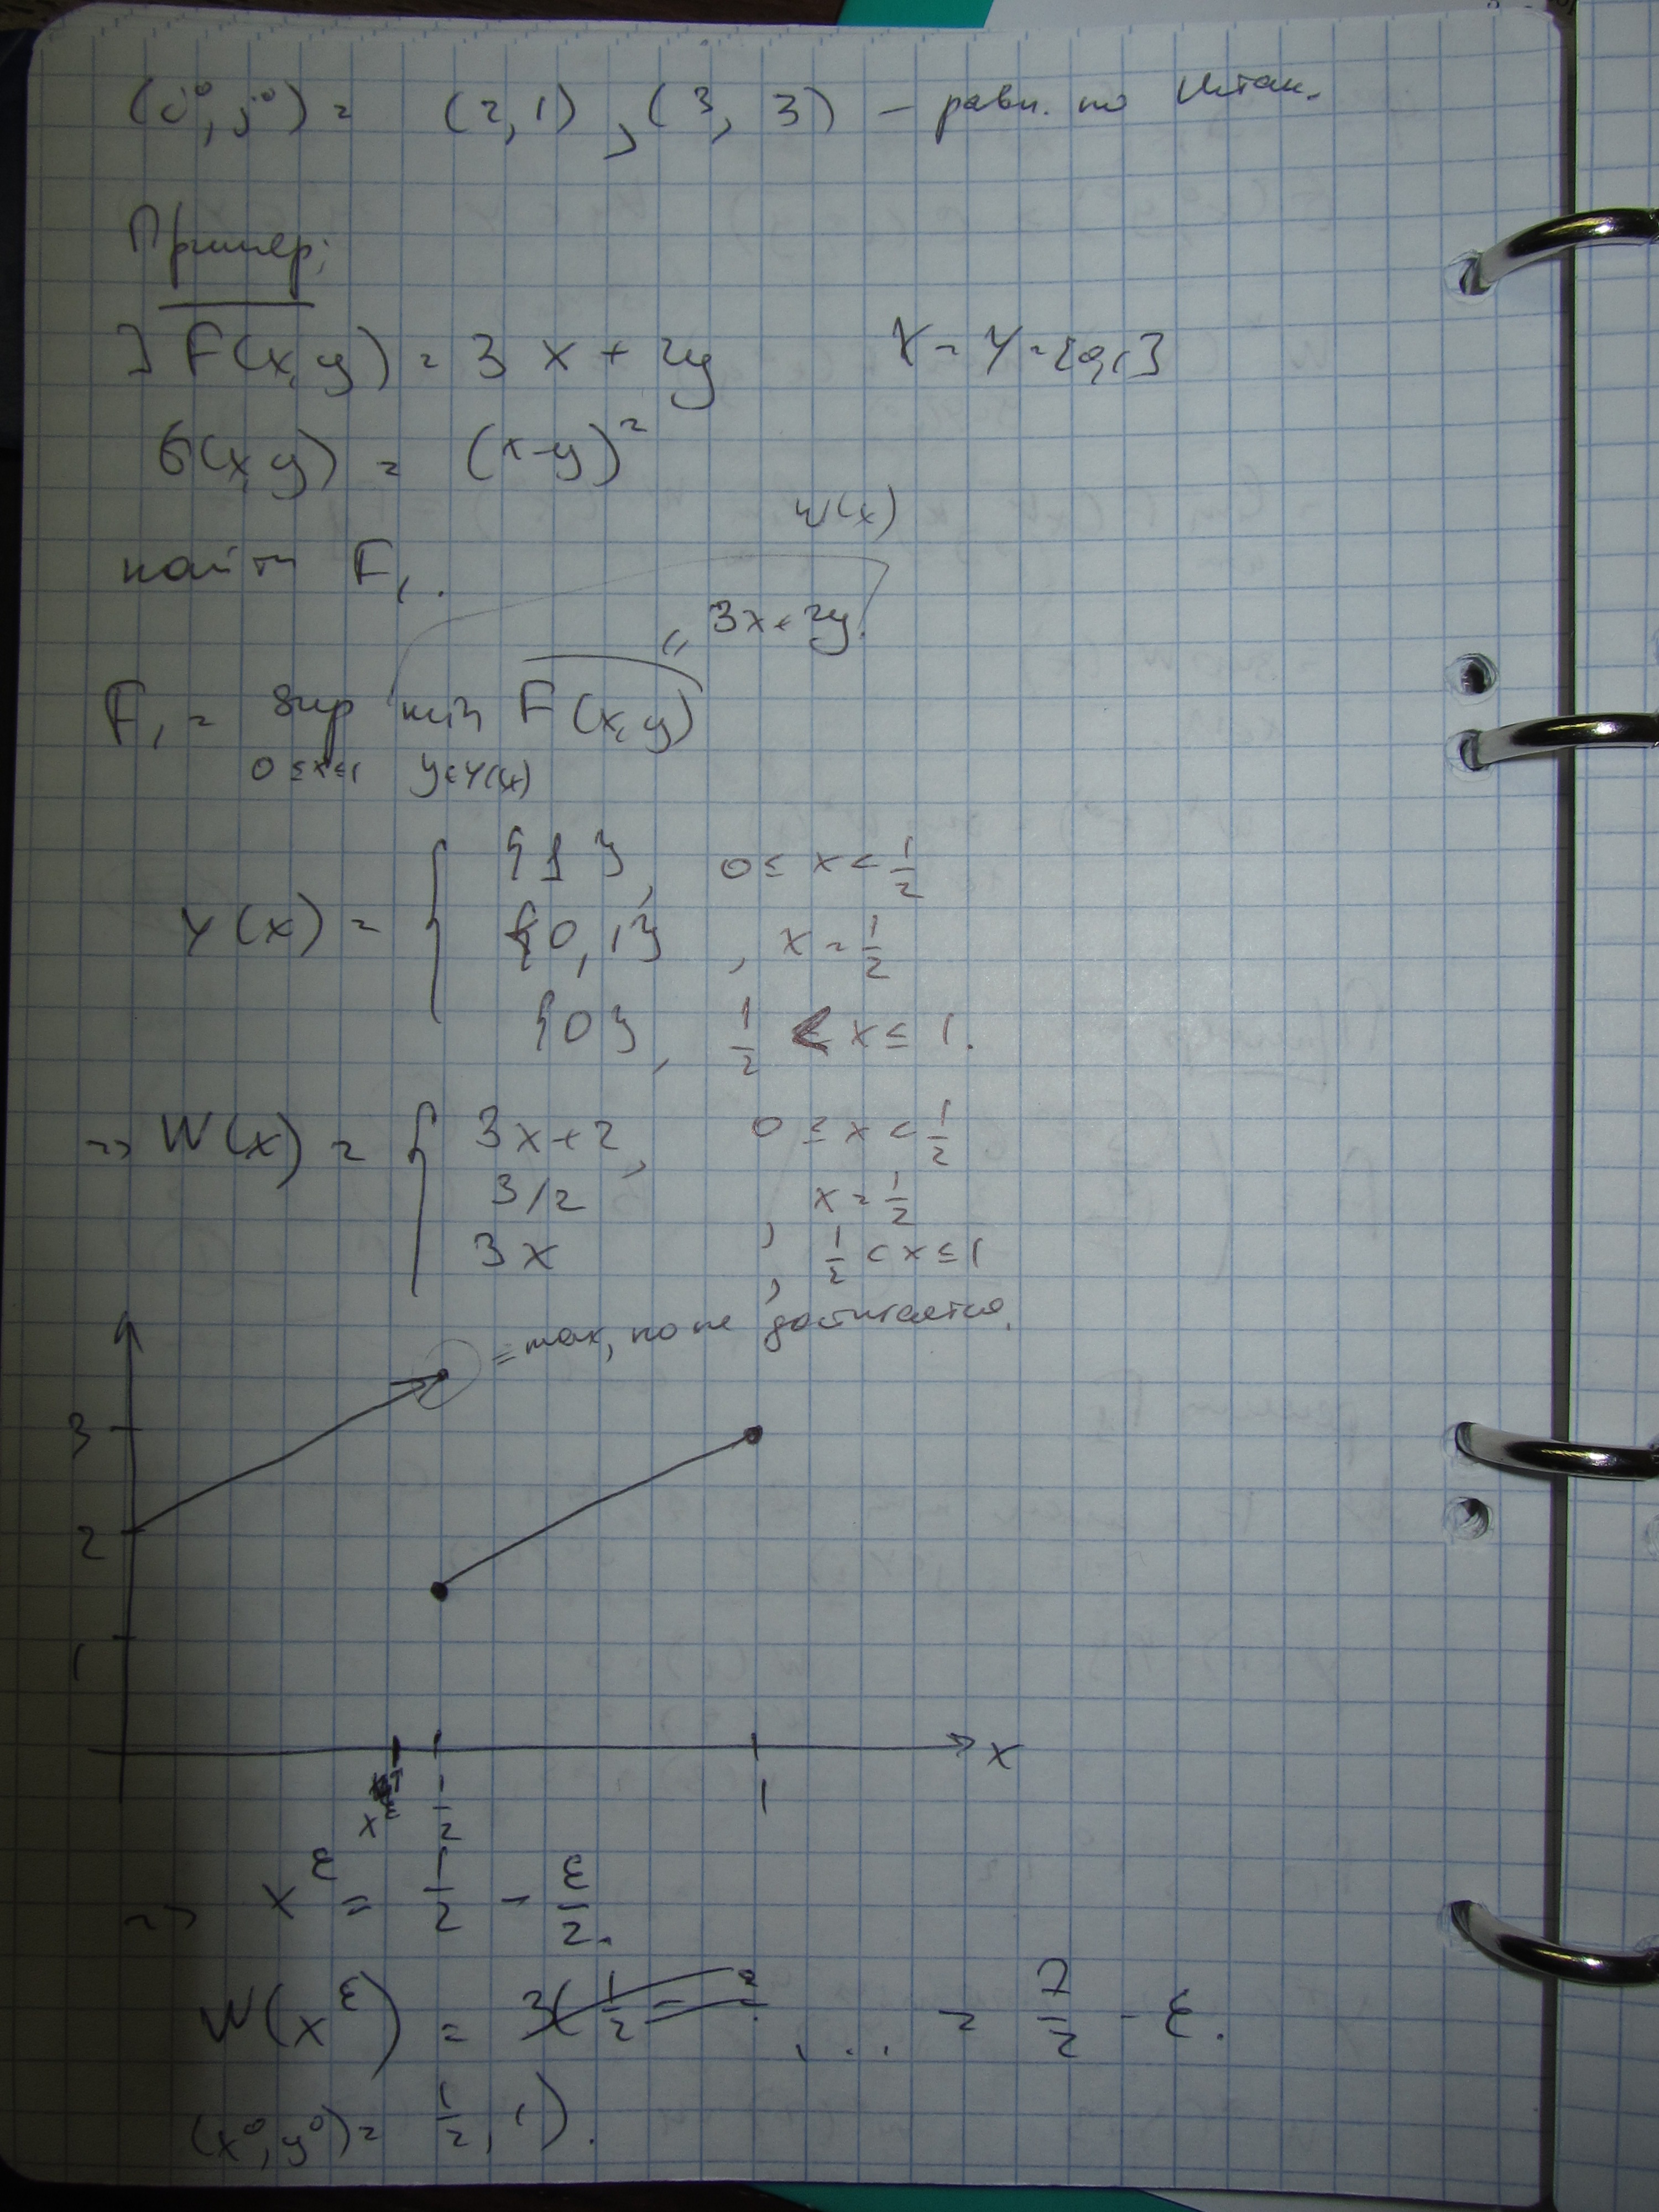 (i⁰, j⁰) = (2, 1), (3, 3) – равн. по Штак.
Пример:
] F(x,y) = 3x + 2y X = Y = [0,1]
G(x,y) = (x-y)²
W(x)
найти F₁.
= 3x + 2y.
F₁ = sup min F(x,y)
0≤x≤1 y∈Y(x)
Y(x) = { {1}, 0 ≤ x < 1/2
{0, 1}, x = 1/2
{0}, 1/2 < x ≤ 1.
=> W(x) = { 3x+2, 0 ≤ x < 1/2
3/2, x = 1/2
3x, 1/2 < x ≤ 1
= max, но не достигается.
3
2
1
x
x^ε 1/2 1
=> x^ε = 1/2 - ε/2.
W(x^ε) = ... = 7/2 - ε.
(x⁰, y⁰) = 1/2, 1).